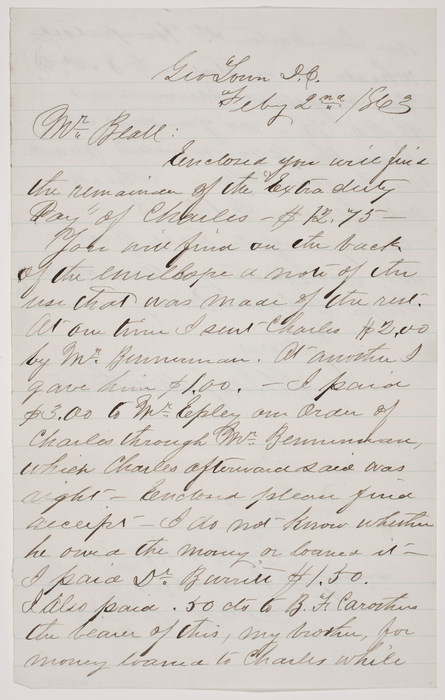 Geo Town D.C.
Feby 2nd /863
Mr. Beall:
Enclosed you will find
the remainder of the "Extra duty
Pay" of Charles — $12.75 —
You will find on the back
of the envellope a note of the
use that was made of the rest.
At one time I sent Charles $2.00
by Mr. Bennerman. At another I
gave him $1.00. — I paid
$3.00 to Mr. Epley on order of
Charles through Mr. Bennerman,
which Charles afterward said was
right — Enclosed please find
receipt — I do not know whether
he owed the money or loaned it —
I paid Dr. $1.50.
I also paid .50 cts to B. F. Carothers
the bearer of this, my brother, for
money loaned to Charles while